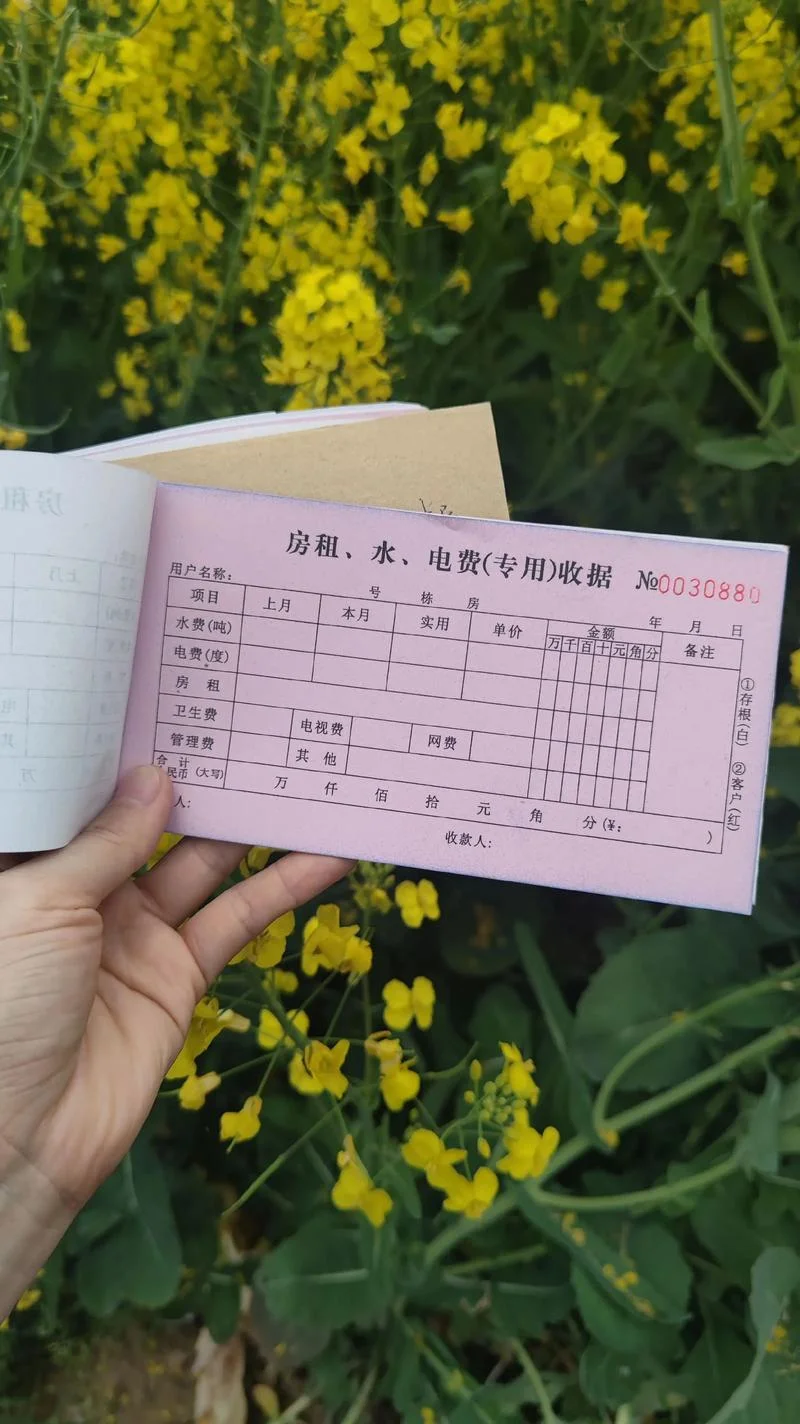 房租、水、电费(专用)收据 №0030880
用户名称：
号 栋 房 年 月 日
项目 上月 本月 实用 单价 金额 备注
万 千 百 十 元 角 分
水费(吨)
电费(度)
房 租
卫生费 电视费 网费
管理费 其 他
合 计
民币 (大写) 万 仟 佰 拾 元 角 分(¥: )
人: 收款人:
①存根(白) ②客户(红)
房租
上月